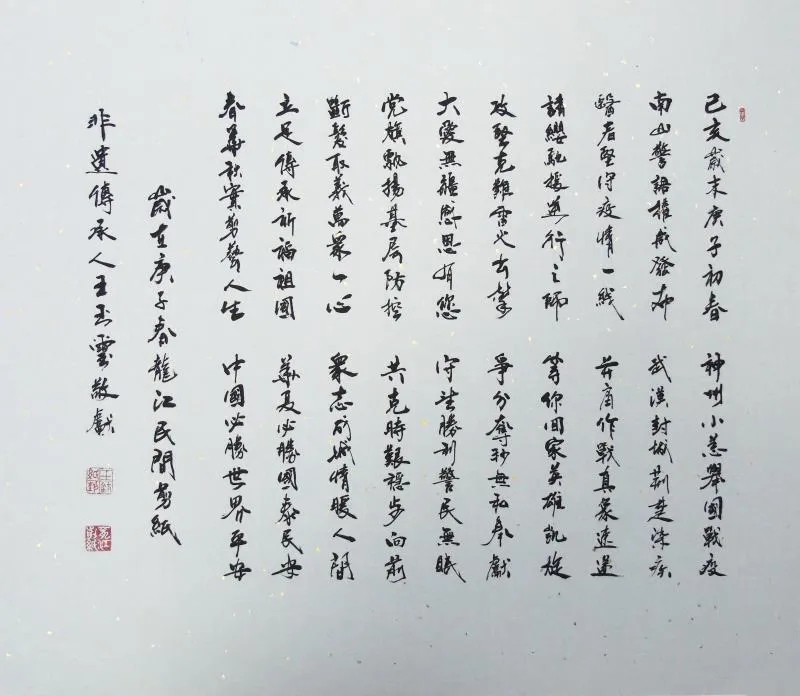 己亥歲末庚子初春 神州小恙舉國戰疫
南山警語權威發布 武漢封城荊楚染疾
醫者堅守疫情一线 并肩作戰真篆速递
請纓馳援逆行之師 等你回家英雄凱旋
攻堅克難雷火出擊 爭分奪秒無私奉獻
大愛無疆感恩有您 守望勝利警民無眠
党旗飘揚基层防控 共克時艱穩步向前
斷髮取義萬眾一心 眾志成城情暖人間
立足傳承祈福祖國 華夏必勝國泰民安
春華秋實剪藝人生 中國必勝世界平安
歲在庚子春龍江民間剪紙
非遺傳承人王玉雲敬獻